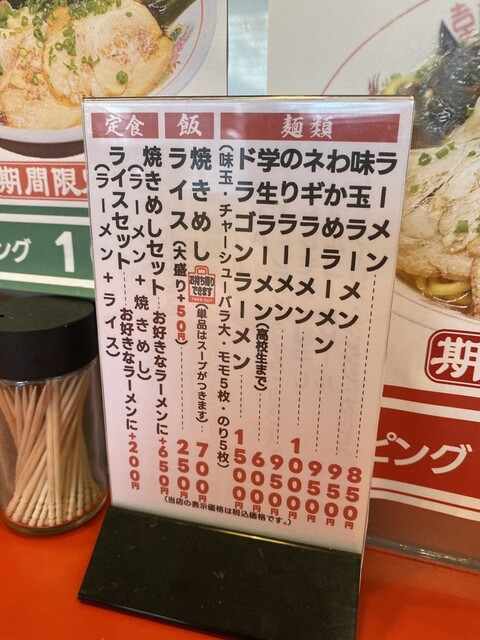 麺類
ラーメン 850円
味玉ラーメン 950円
わかめラーメン 950円
ネギラーメン 1000円
のりラーメン 950円
学生ラーメン(高校生まで) 600円
ドラゴンラーメン 1500円
(味玉・チャーシューバラ大、モモ5枚・のり5枚)
飯
焼きめし 700円
お持ち帰りできます
TAKE OUT
(単品はスープがつきます)
ライス(大盛り+50円) 250円
定食
焼きめしセット お好きなラーメンに+650円
(ラーメン+焼きめし)
ライスセット お好きなラーメンに+200円
(ラーメン+ライス)
(当店の表示価格は税込価格です。)
期間限
ング 1
期
ピング